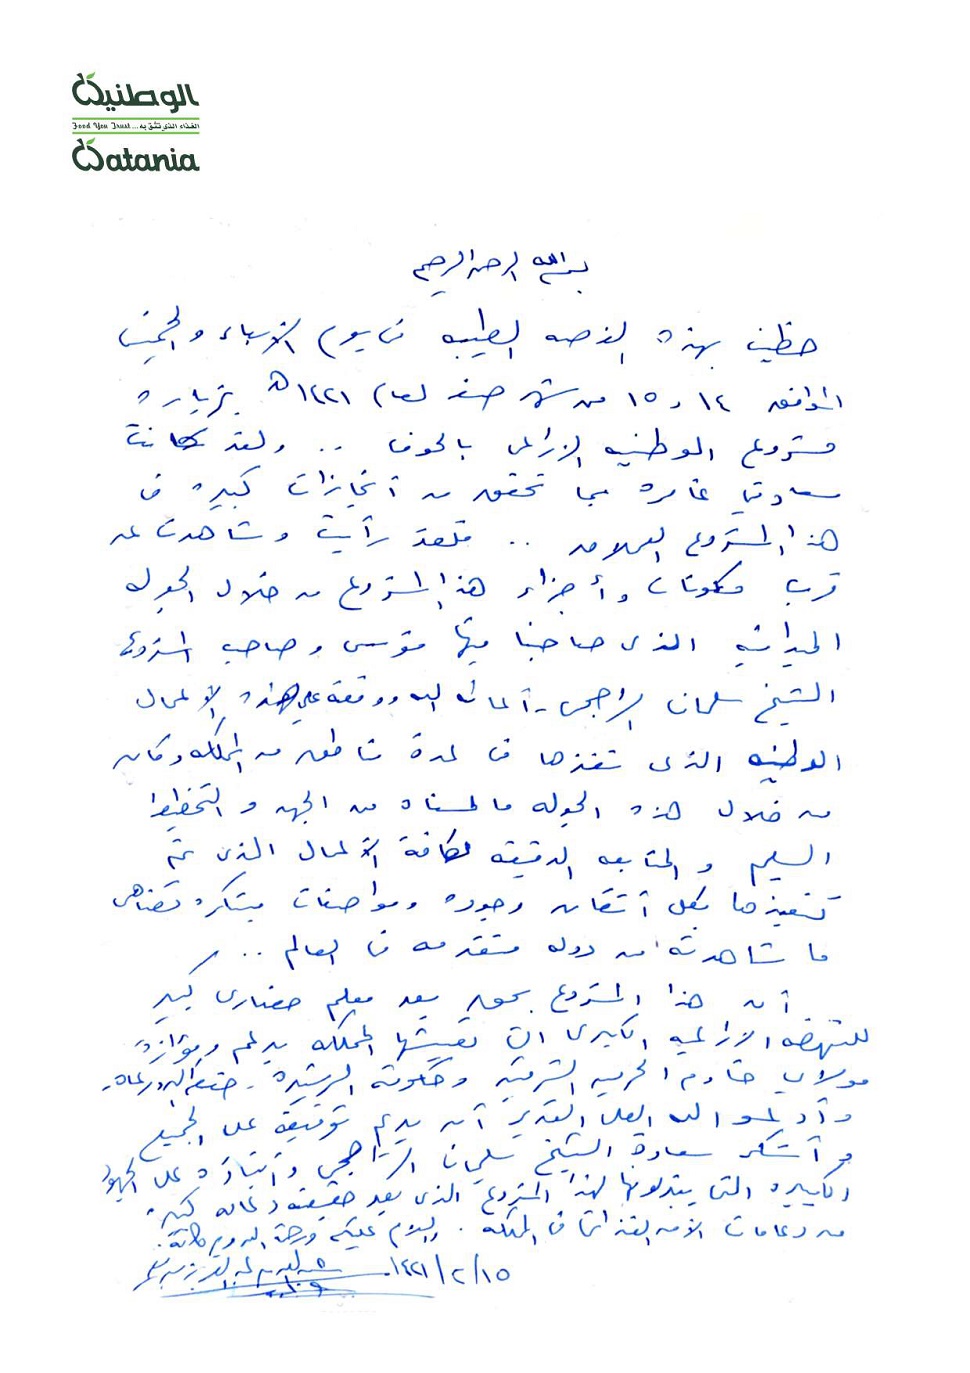 الوطنية
Food You Trust... الغذاء الذي تثق به
Watania
بسم الله الرحمن الرحيم
حظيت بهذه الفرصه الطيبه في يومي الأربعاء والخميس
الموافق ١٤ و ١٥ من شهر صفر لعام ١٤٢١هـ بزياره
مشروع الوطنيه الزراعي بالجوف .. ولقد كانت
سعادتي غامره بما تحقق من أنجازات كبيره في
هذا المشروع العملاق .. فلقد رأيت وشاهدت عن
قرب مكونات وأجزاء هذا المشروع من خلال الجوله
الميدانيه الذى صاحبنا فيها مؤسس وصاحب المشروع
الشيخ سليمان الراجحي - أعانه الله ووفقه على هذه الأعمال
الوطنيه الذى تنفذها في عدة مناطق من المملكه وكان
من خلال هذه الجوله ما لمسناه من الجهد والتخطيط
السليم والمتابعه الدقيقه لكافة الأعمال الذى تم
تنفيذها بكل أتقان وجوده ومواصفات مبتكره تضاهى
ما شاهدته من دوله متقدمه في العالم ..
أن هذا المشروع بحق يعد معلم حضارى كبير
للنهضه الزراعيه الكبرى التي تعيشها المملكه بدعم ومؤازرة
مولاي خادم الحرمين الشرفين وحكومته الرشيدة - حفظهم الله ورعاه -
وأدعو الله العلى القدير أن يديم توفيقة على الجميع
وأشكر سعادة الشيخ سليمان الراجحي وأبناؤه على الجهود
الكبيره التى يبذلونها لهذا المشروع الذى يعد حقيقه دعامه كبيره
من دعامات الأمن الغذائي في المملكه . والسلام عليكم ورحمة الله وبركاته .
١٤٢١/٢/١٥